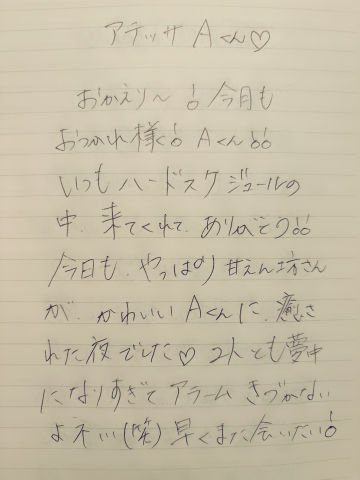 アテッサ Aくん♡
おかえり〜! 今月も
おつかれ様! Aくん!!
いつもハードスケジュールの
中、来てくれて、ありがとう!!
今日も、やっぱり甘えん坊さん
が、かわいいAくんに、癒さ
れた夜でした♡ 2人とも夢中
になりすぎてアラームきづかない
よネ(笑) 早くまた会いたい!